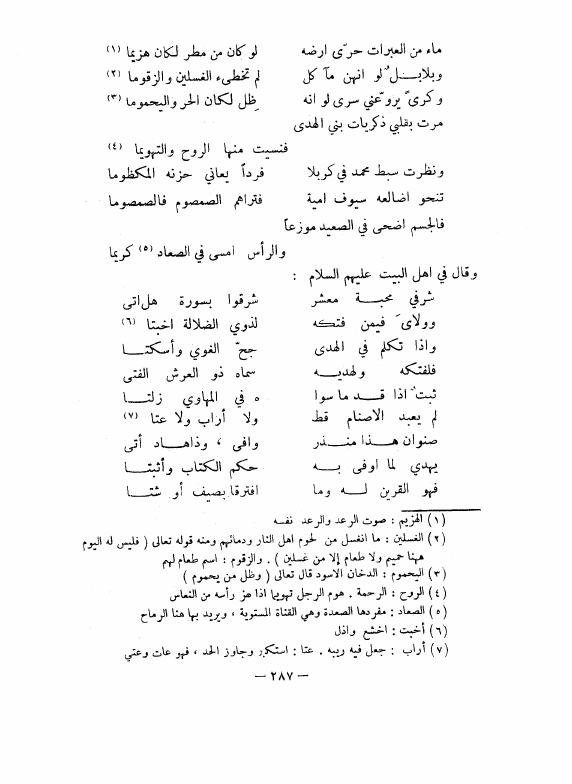 ماء من العبرات حرّى ارضه لو كان من مطر لكان هزيما (١)
وبلابـــل لو انهن مآكل لم تخطىء الغسلين والزقوما (٢)
وكرىً يروّعني سرى لو انه ظل لكان الحر واليحموما (٣)
مرت بقلبي ذكريات بني الهدى
فنسيت منها الروح والتهويما (٤)
ونظرت سبط محمد في كربلا فرداً يعاني حزنه المكظوما
تنحو اضالعه سيوف امية فتراهم الصمصوم فالصمصوما
فالجسم اضحى في الصعيد موزعاً
والرأس امسى في الصعاد (٥) كريما
وقال في اهل البيت عليهم السلام :
شرفي محبـــة معشر شرقوا بسورة هل اتى
وولاىَ فيمن فتكه لذوي الضلالة اخبتا (٦)
واذا تكلم في الهدى جحّ الغوي وأسكتـــا
فلفتكه ولهديـــه سماه ذو العرش الفتى
ثبت اذا قـــد ما سوا ه في المهاوي زلتـــا
لم يعبد الاصنام قط ولا أراب ولا عتا (٧)
صنوان هـــذا منـــذر وافى ، وذاهـــاد أتى
يهدي لما اوفى بـــه حكم الكتاب وأثبتـــا
فهو القرين لـــه وما افترقا بصيف أو شتـــا
(١) الهزيم : صوت الرعد والرعد نفسه
(٢) الغسلين : ما انغسل من لحوم اهل النار ودمائهم ومنه قوله تعالى ( فليس له اليوم
ههنا حميم ولا طعام إلا من غسلين ) . والزقوم : اسم طعام لهم
(٣) اليحموم : الدخان الاسود قال تعالى ( وظل من يحموم )
(٤) الروح : الرحمة . هوم الرجل تهويما اذا هز رأسه من النعاس
(٥) الصعاد : مفردها الصعدة وهي القناة المستوية ، ويريد بها هنا الرماح
(٦) أخبت : اخشع واذل
(٧) أراب : جعل فيه ريبه . عتا : استكبر وجاوز الحد ، فهو عات وعتي
— ٢٨٧ —